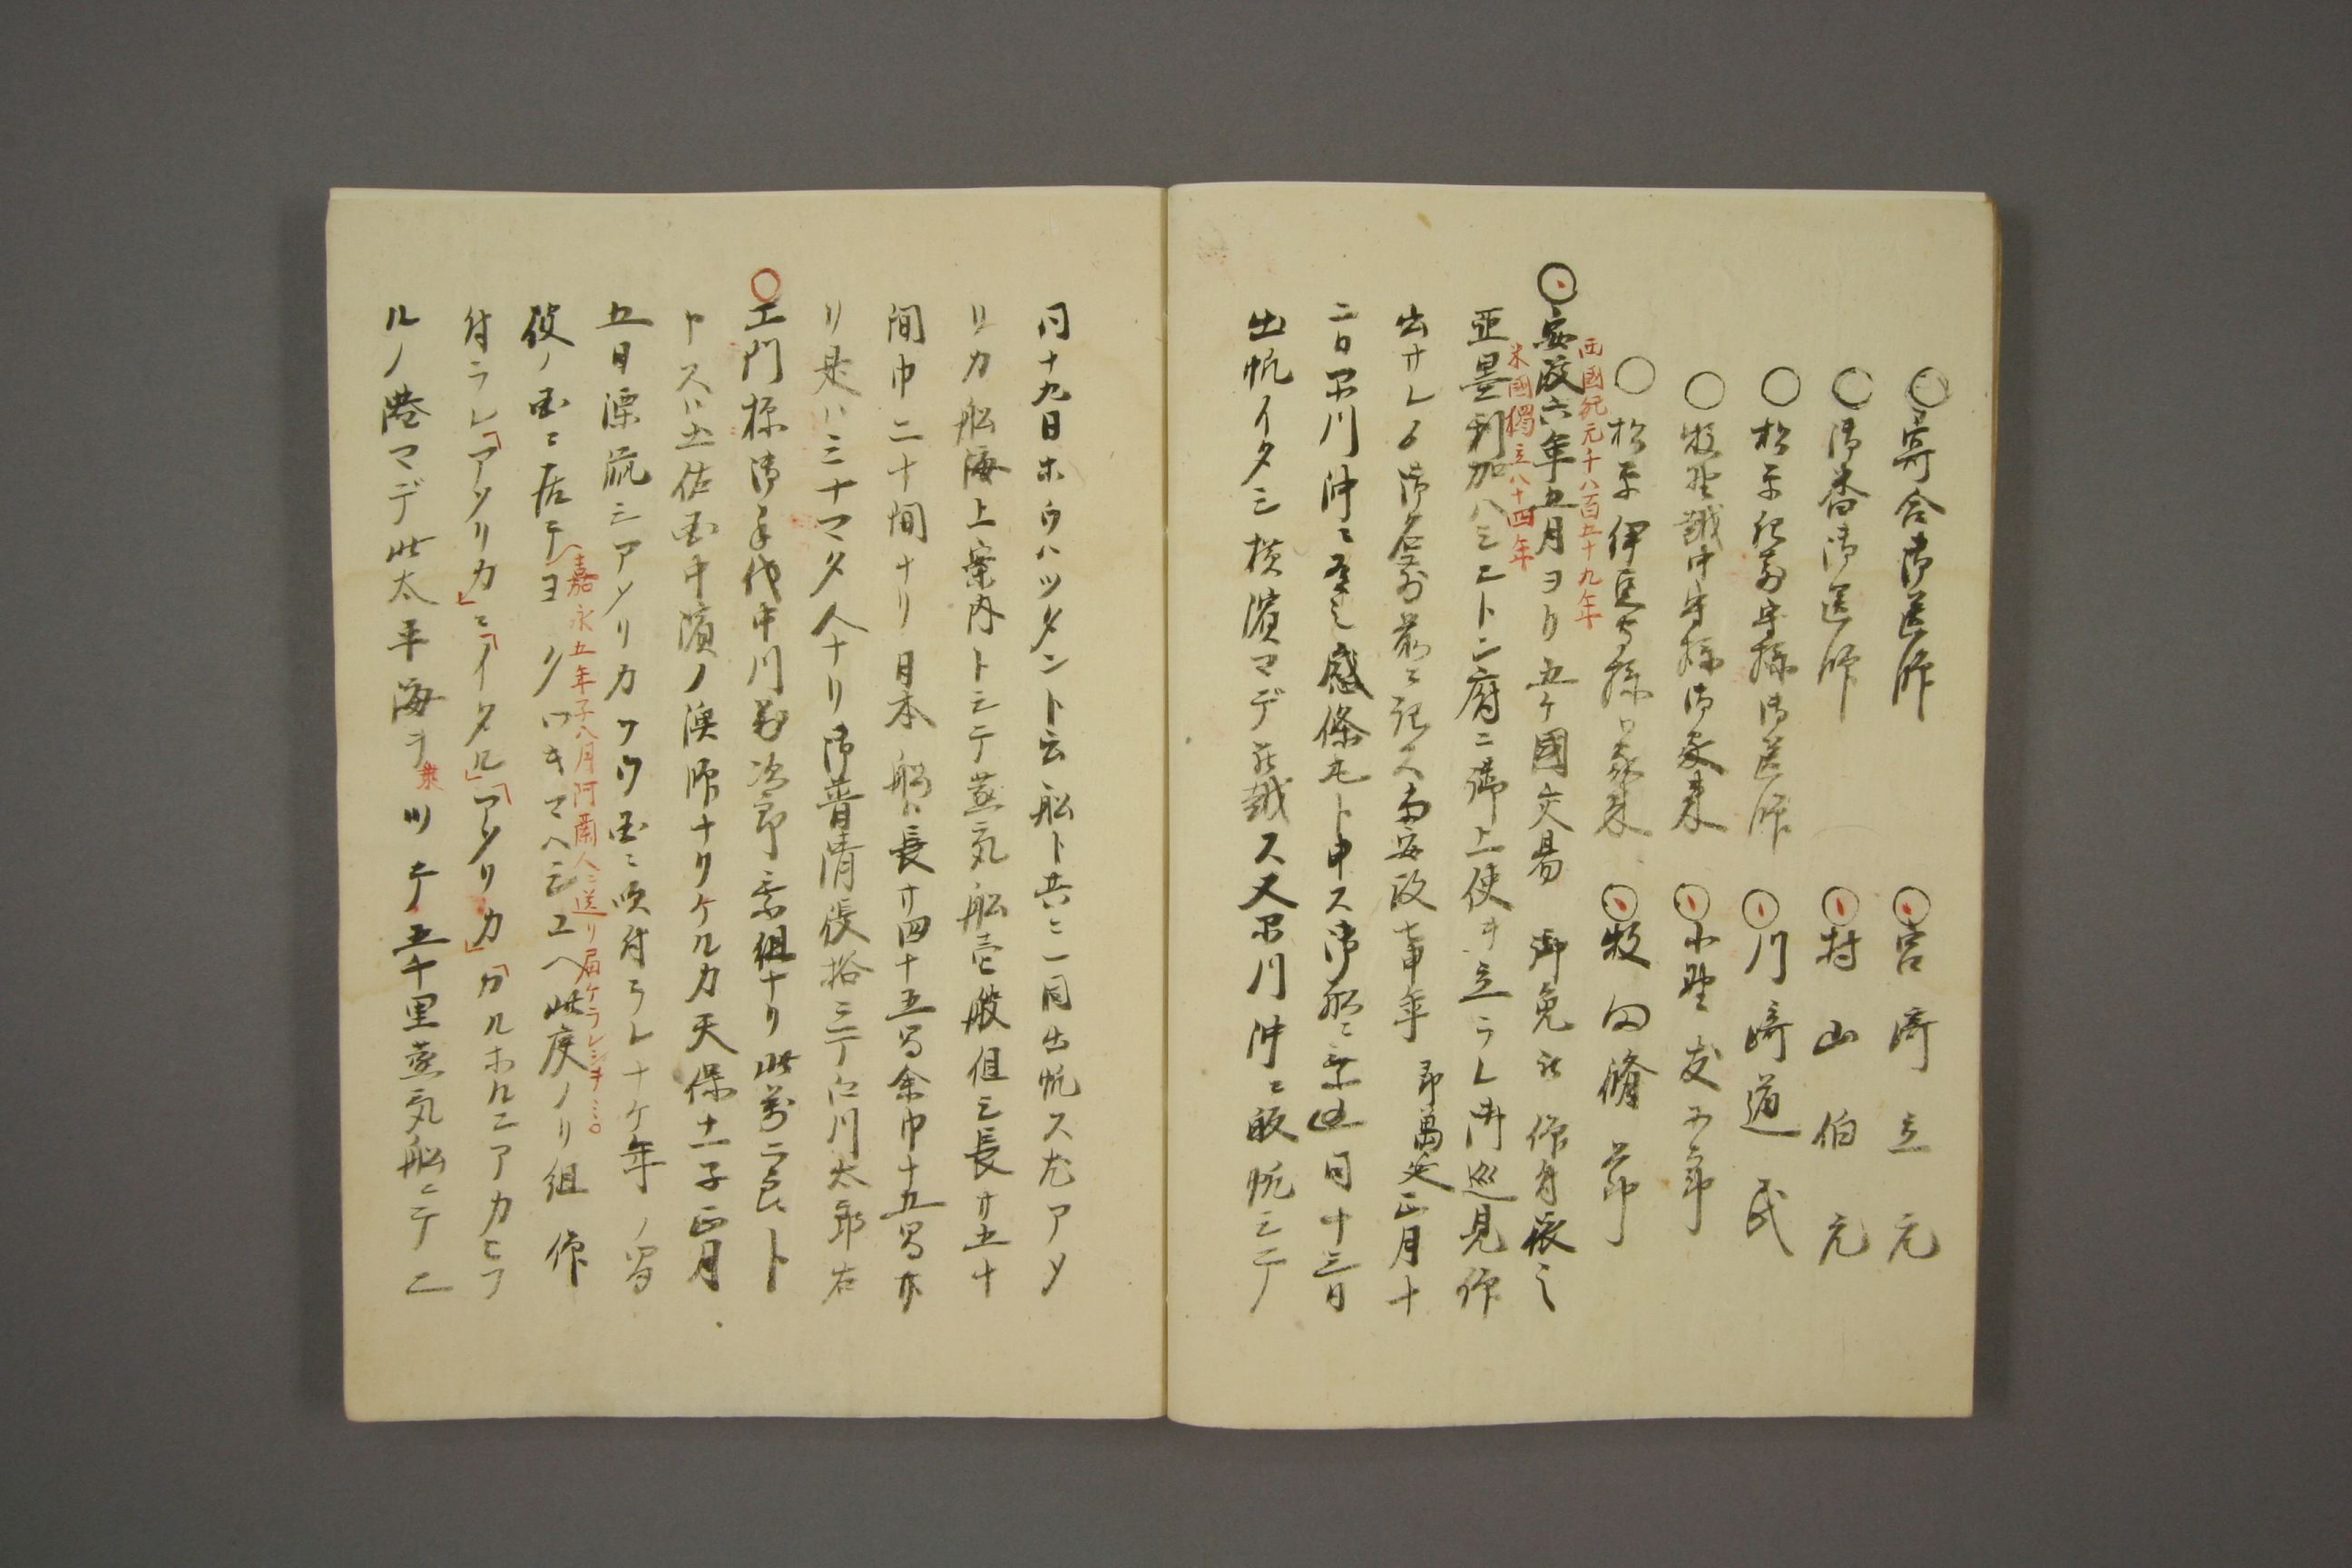 ○寄合御医師　　　宮崎立元
○御番御医師　　　村山伯元
○松平肥前守様御医師　　川崎道民
○牧野越中守様御家来　　小野友五郎
○松平伊豆守様御家来　　牧田脩節
西國紀元千八百五十九年
○安政六年五月ヨリ五ケ國交易　御免被仰付依之
米國獨立八十四年
亜墨利加ハシントン府ニ御上使ヲ立ラレ御巡見仰
出サレ御名前前ニ記ス安政七申年　即萬延正月十
二日品川沖ニ咸條丸ト申ス御船ニ乗込同十三日
出帆イタシ横濱マデ罷越ス又品川沖ニ皈帆シテ
同十九日ホウハツタント云船ト共ニ一同出帆ス尤アメ
リカ船海上案内トシテ蒸気船壱艘但シ長サ五十
間巾二十間ナリ日本船ハ長サ四十五間余巾十五間
リ是ハ三十マタ人ナリ御普請役格江川太郎右
○エ門様御手代中川万次郎乗組ナリ此萬二良ト
申スハ土佐国中濱ノ漁師ナリケルカ天保十二子正月
五日漂流シアメリカワウ国ニ吹付ラレ十ケ年ノ間
彼ノ国ニ居テヨクワキマヘシユヘ此度ノリ組仰
嘉永五年子八月阿蘭人ニ送リ届ケラレシヨシ
付ラレ「アメリカ」ニ「イタル」「アメリカ」「カルホルニアカヒフ
ルノ港マデ此太平海ヲ乗ツ テ五千里蒸気船ニテ二